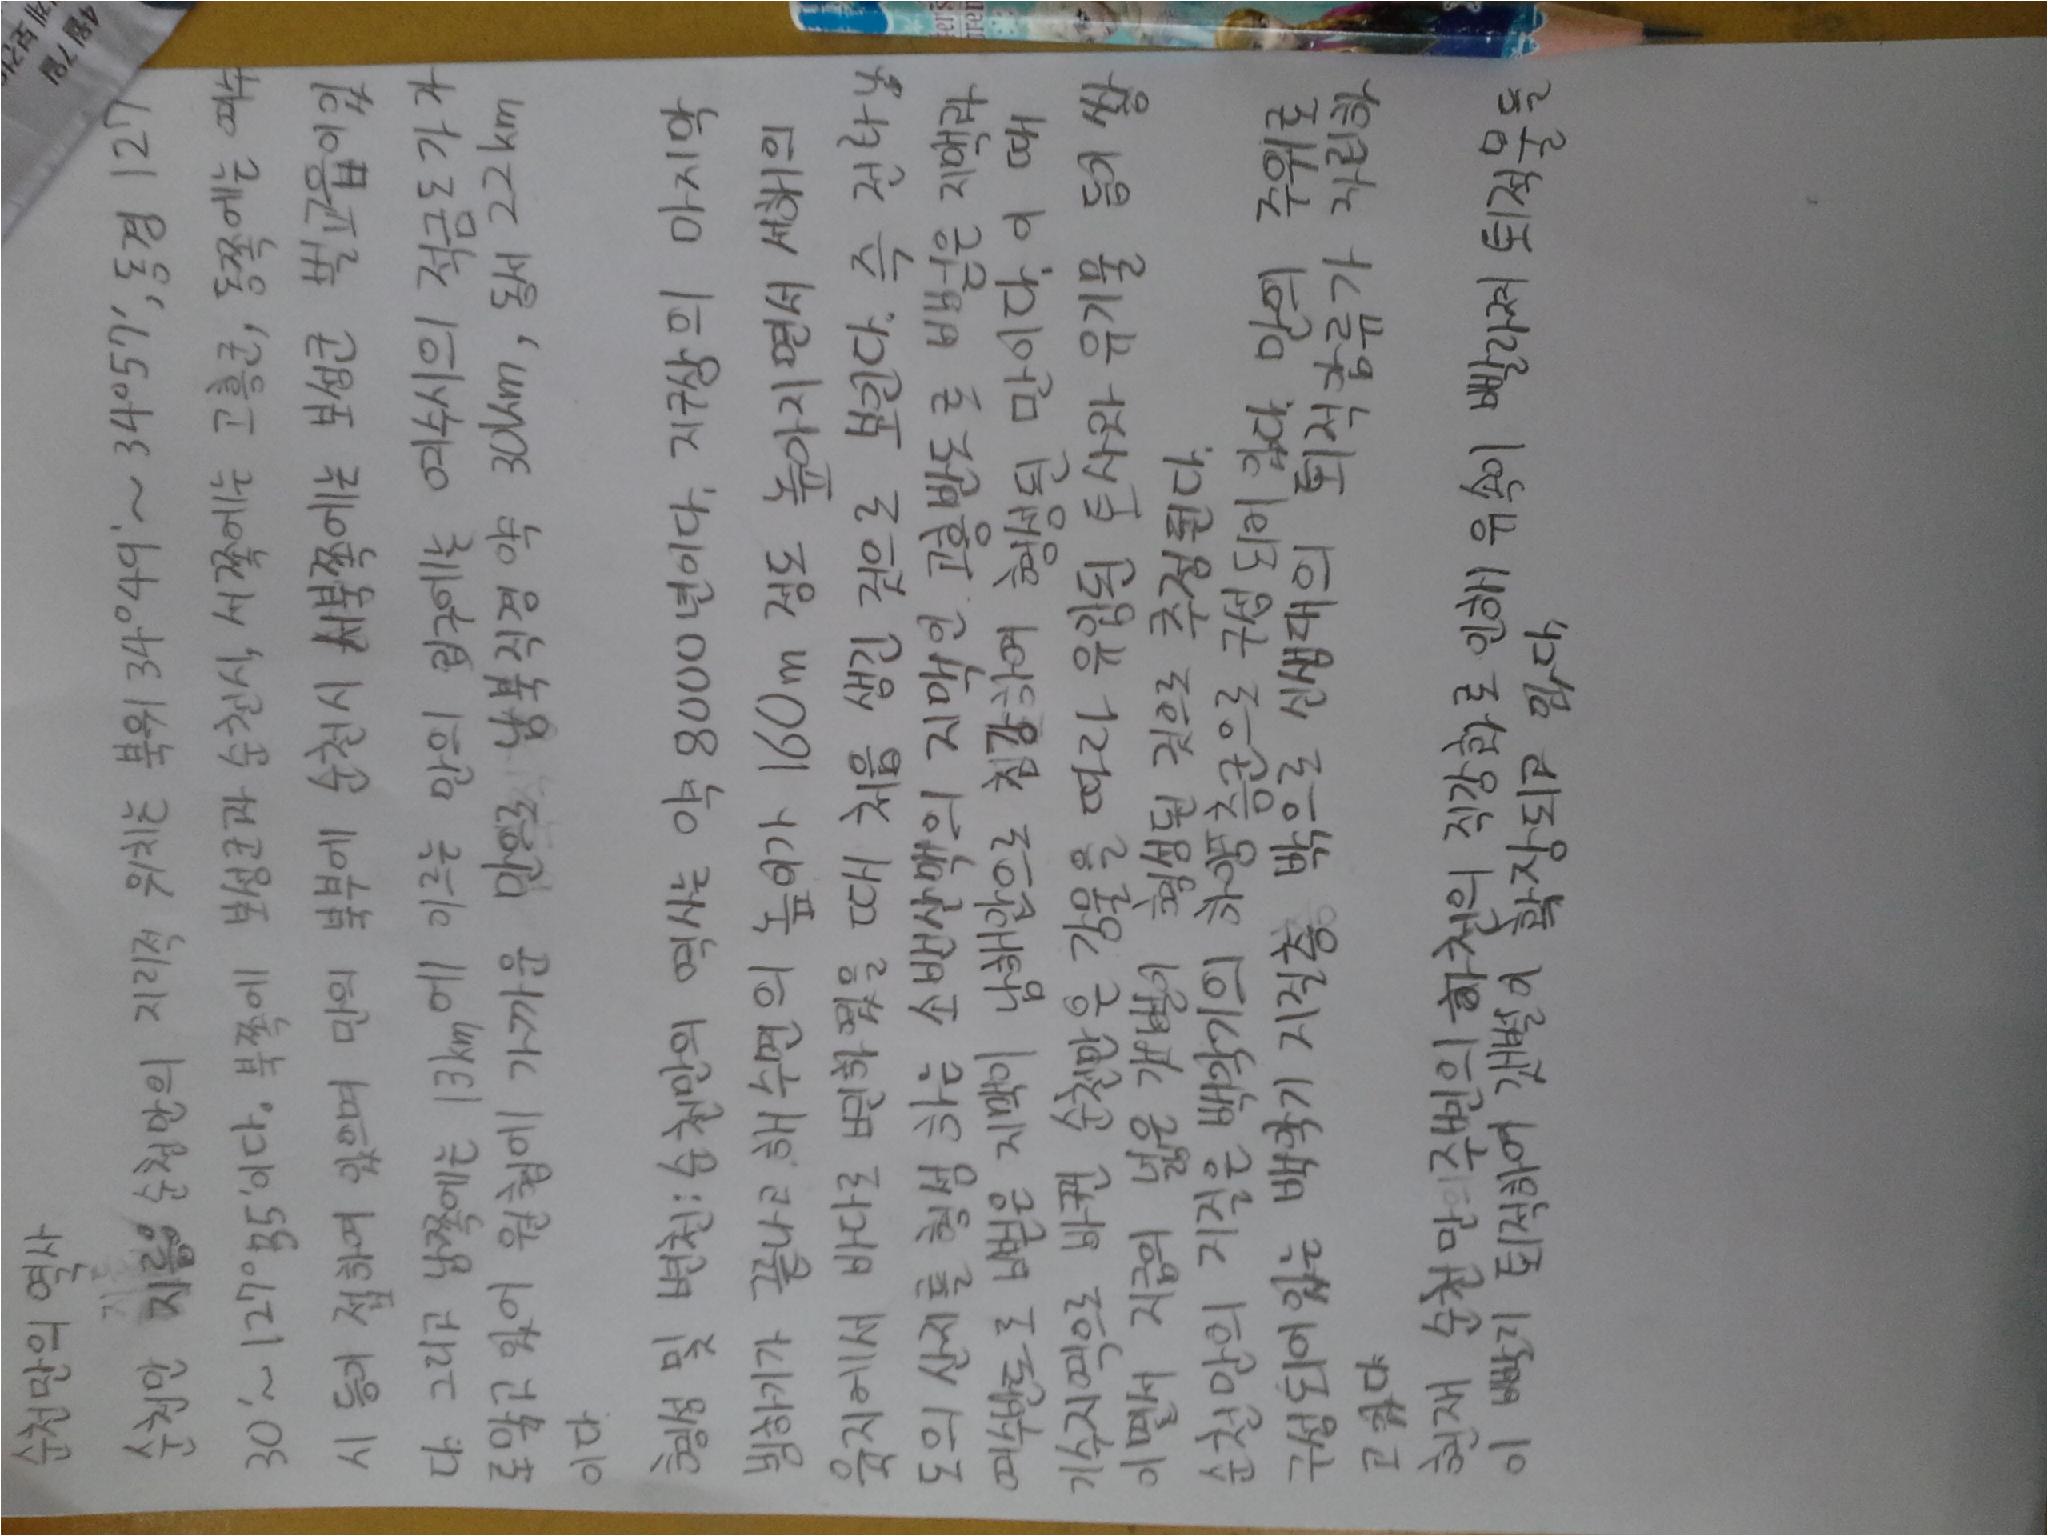 순천만의 역사
순천만 지형 순천만의 지리적 위치는 북위 34°49'~34°57', 동경 127
30'~127°35'이다. 북쪽에 보성군과 순천시, 서쪽에는 고흥군, 동쪽에는 여수
시 등이 접하여 있으며 만의 북부에 순천시 서부쪽에는 보성군 벌교읍이 있
다. 그리고 남쪽에는 13km에 이르는 만의 입구에는 여수시의 적금도가 가
로막고 있어 원형에 가까운 만으로 남북직경 약 30km, 동서 22km
이다
형성 및 변천: 순천만의 역사는 약 8000년이다. 지구상의 마지막
빙하기가 끝나고 해수면의 높이가 160m 정도 높아지면서 서해의
육지에서 바다로 변하였을 때 처음 생긴 것으로 보인다. 즉 전라남
도의 산지를 형성하는 소백산맥의 지맥인 고흥반도로 뻗은 지맥과
여수반도로 뻗은 지맥이 남해안으로 침강하여 형성된 만이다. 이 때
기수지역으로 바뀐 순천만은 강물을 따라 유입된 토사와 유기물 등이 쌓
이면서 지금의 넓은 갯벌이 형성된 것으로 추정된다.
순천만의 기질은 백악기의 하양층군으로 구성되어 있다. 만의 주위로
구성되어있는 백악기 지질층 밖으로 신생대의 퇴적충류가 자리하
고 있다
현재 순천만의 주변의 하천의 직강화로 인해 유속이 빨라져 퇴적물들
이 빨리 퇴적하여 갯벌이 확장되고 있다.